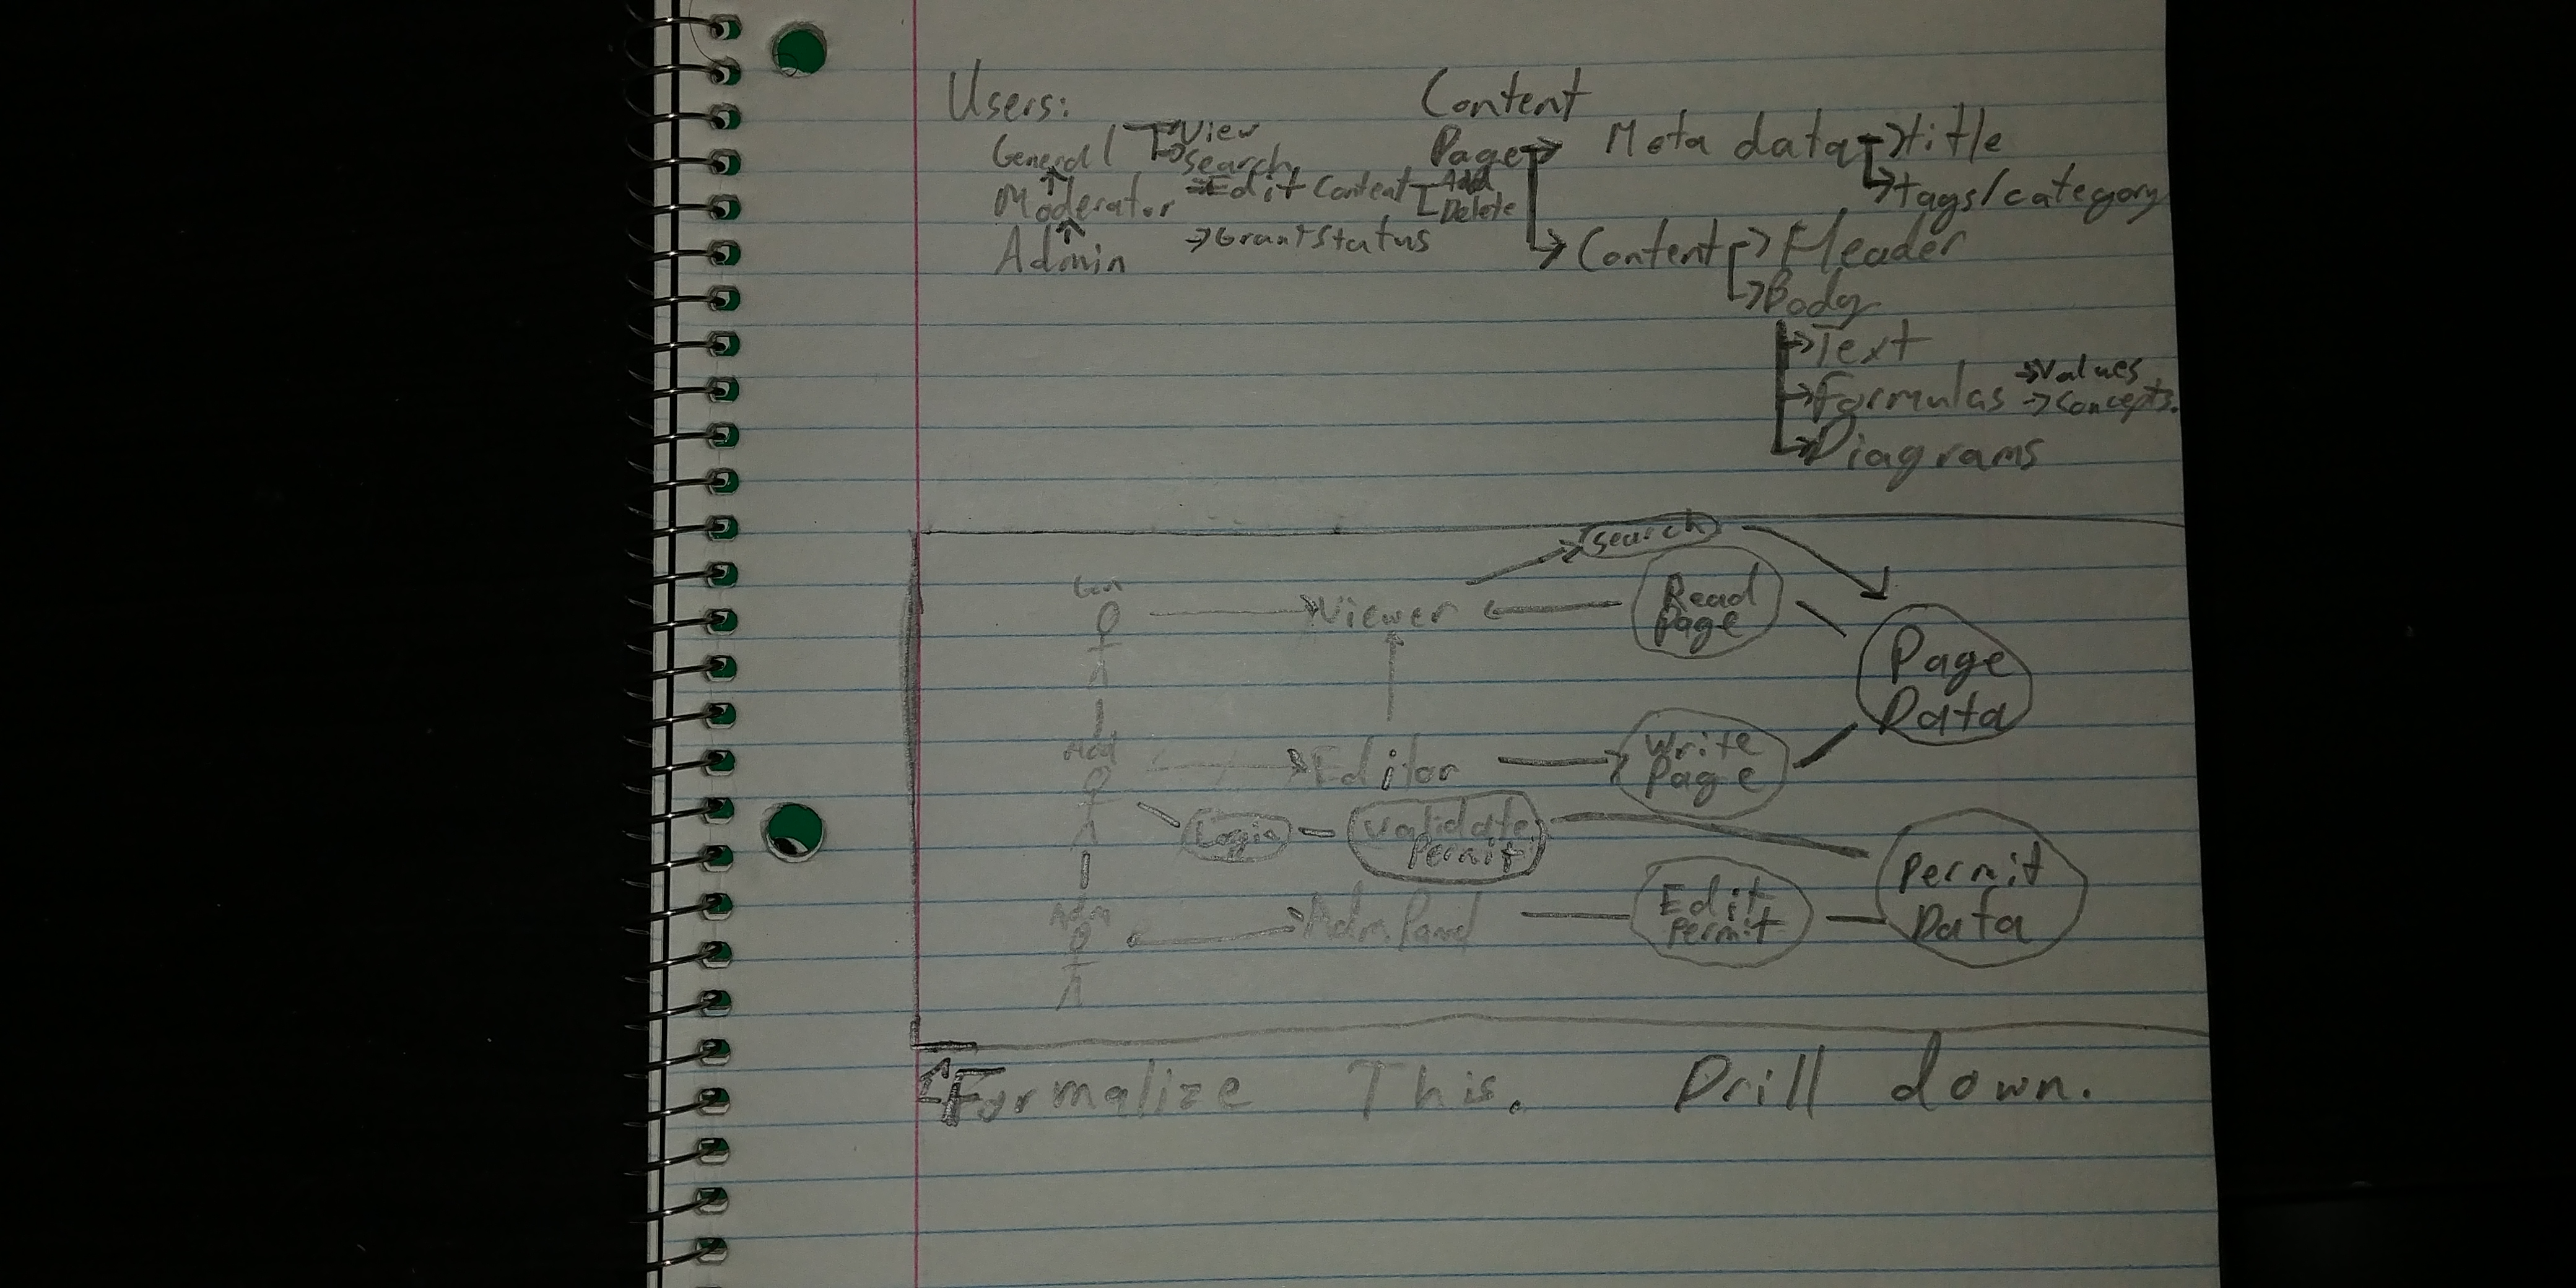 Users:
General → View
→ Search
Moderator → Edit Content Add
Delete
Admin → Grant Status
Content
Page → Meta data → title
→ tags/category
→ Content → Header
→ Body
→ Text
→ Formulas → Values
→ Concepts.
→ Diagrams
Search
Gen
Viewer
Read
Page
Page
Data
Editor
Write
Page
Login
Validate
Permit
Permit
Data
Adm
Adm. Panel
Edit
Permit
↑ Formalize This. Drill down.